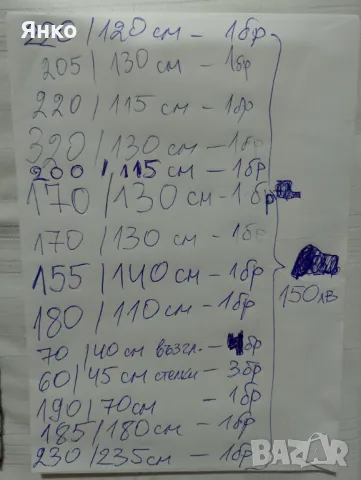 Янко
220/120 см - 1бр
205/130 см - 1бр
220/115 см - 1бр
320/130 см - 1бр
200/115 см - 1бр
170/130 см - 1бр
170/130 см - 1бр
155/140 см - 1бр
180/110 см - 1бр
150лв
70/40 см възгл. - 4бр
60/45 см стелки - 3бр
190/70см - 1бр
185/180см - 1бр
230/235см - 1бр
BAZAR